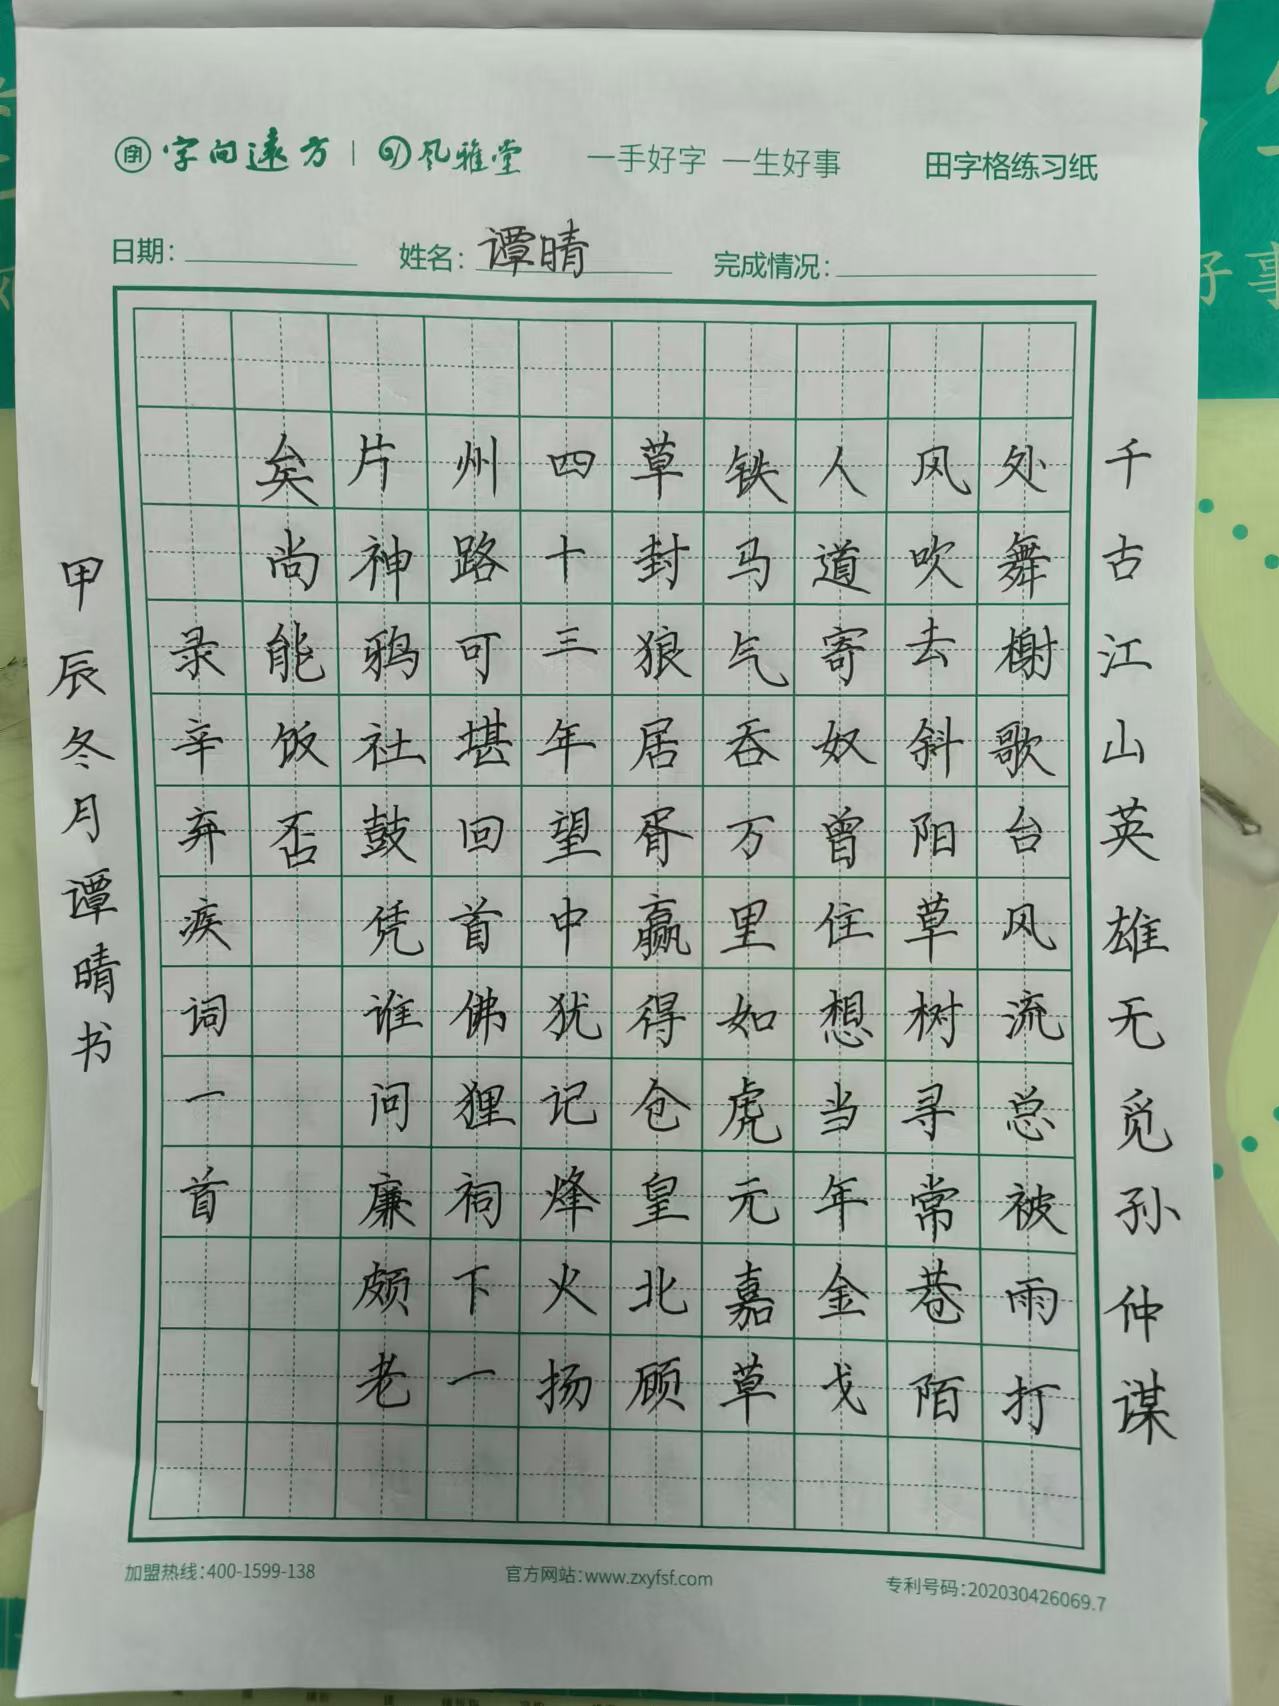 字向远方 | 风雅堂 一手好字 一生好事 田字格练习纸
日期： 姓名：谭晴 完成情况：
千古江山英雄无觅孙仲谋
处舞榭歌台风流总被雨打
风吹去斜阳草树寻常巷陌
人道寄奴曾住想当年金戈
铁马气吞万里如虎元嘉草
草封狼居胥赢得仓皇北顾
四十三年望中犹记烽火扬
州路可堪回首佛狸祠下一
片神鸦社鼓凭谁问廉颇老
矣尚能饭否
录辛弃疾词一首
甲辰冬月谭晴书
加盟热线：400-1599-138 官方网站：www.zxyfsf.com 专利号码：202030426069.7
好事